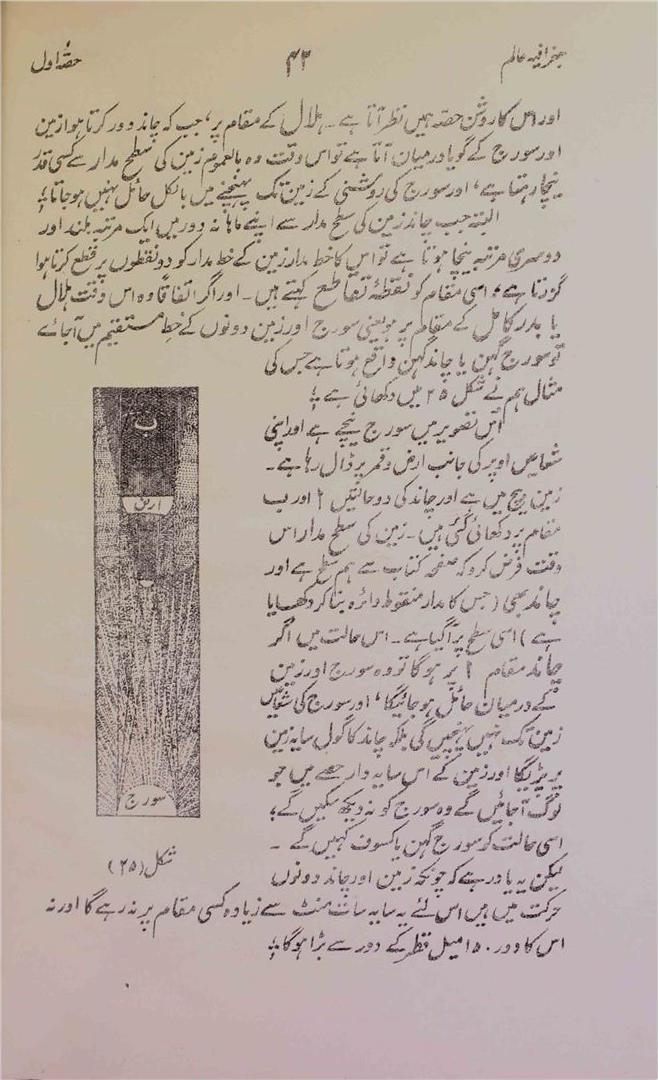 جغرافیہ عالم
۴۲
حصّہ اول
اور اس کا روشن حصہ ہمیں نظر آتا ہے ۔ ہلال کے مقام پر، جب کہ چاند دور کرتا ہوا زمین
اور سورج کے گویا درمیان آتا ہے تو اس وقت وہ بالعموم زمین کی سطح مدار سے کسی قدر
نیچا رہتا ہے، اور سورج کی روشنی کے زمین تک پہنچنے میں بالکل حائل نہیں ہوجاتا؛
البتہ جب چاند زمین کی سطح مدار سے اپنے ماہانہ دور میں ایک مرتبہ بلند اور
دوسری مرتبہ نیچا ہوتا ہے تو اس کا خط مدار زمین کے خط مدار کو دو نقطوں پر قطع کرتا ہوا
گزرتا ہے، اسی مقام کو نقطۂ تقاطع کہتے ہیں ۔ اور اگر اتفاقاً وہ اس وقت ہلال
یا بدر کامل کے مقام پر ہو یعنی سورج اور زمین دونوں کے خط مستقیم میں آجائے
تو سورج گہن یا چاند گہن واقع ہوتا ہے جس کی
مثال ہم نے شکل ۲۵ میں دکھائی ہے ؛
اس تصویر میں سورج نیچے ہے اور اپنی
شعاعیں اوپر کی جانب ارض و قمر پر ڈال رہا ہے ۔
زمین بیچ میں ہے اور چاند کی دو حالتیں ا اور ب
مقام پر دکھائی گئی ہیں ۔ زمین کی سطح مدار اس
وقت فرض کرو کہ صفحہ کتاب سے ہم سطح ہے اور
چاند بھی (جس کا مدار منقوط دائرہ بنا کر دکھایا
ہے) اسی سطح پر آگیا ہے ۔ اس حالت میں اگر
چاند مقام ا پر ہوگا تو وہ سورج اور زمین
کے درمیان حائل ہوجائیگا، اور سورج کی شعاعیں
زمین تک نہیں پہنچیں گی بلکہ چاند کا گول سایہ زمین
پر پڑیگا اور زمین کے اس سایہ دار حصے میں جو
لوگ آجائیں گے وہ سورج کو نہ دیکھ سکیں گے؛
اسی حالت کو سورج گہن یا کسوف کہیں گے ۔
لیکن یہ یاد رہے کہ چونکہ زمین اور چاند دونوں
حرکت میں ہیں اس لئے یہ سایہ سات منٹ سے زیادہ کسی مقام پر نہ رہے گا اور نہ
اس کا دور ۱۵۰ میل قطر کے دور سے بڑا ہوگا؛
ب
ارض
سورج
شکل (۲۵)